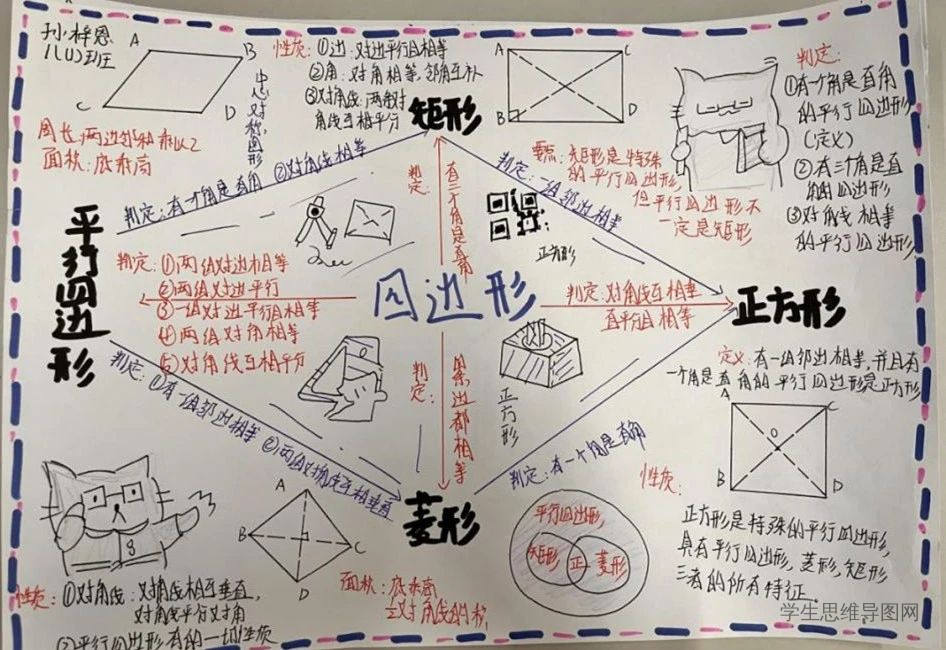 孙梓恩
八(4)班
A
B
C
D
中心对称图形
周长:两边之和乘以2
面积:底乘高
性质:①边:对边平行且相等
②角:对角相等,邻角互补
③对角线:两条对
角线互相平分
矩形
A
C
B
D
要点:矩形是特殊
的平行四边形,
但平行四边形不
一定是矩形
判定:
①有一个角是直角
的平行四边形
(定义)
②有三个角是直
角的四边形
③对角线相等
的平行四边形
判定:有一个角是直角 ②对角线相等
判定:
有三个角是直角
判定:一组邻边相等
正方形
平行四边形
判定:①两组对边相等
②两组对边平行
③一组对边平行且相等
④两组对角相等
⑤对角线互相平分
四边形
判定:对角线互相垂
直平且相等
正方形
定义:有一组邻边相等,并且有
一个角是直角的平行四边形是正方形
判定:①有一组邻边相等 ②两组对角线互相垂直
判定:
四条边都相等
正方形
判定:有一个角是直角
菱形
A
C
O
B
D
性质:
正方形是特殊的平行四边形,
具有平行四边形,菱形,矩形
三者的所有特征.
A
B
C
D
平行四边形
矩形
正
菱形
面积:底乘高
½对角线的积
性质:①对角线:对角线相互垂直,
对角线平分对角
②平行四边形有的一切性质
学生思维导图网